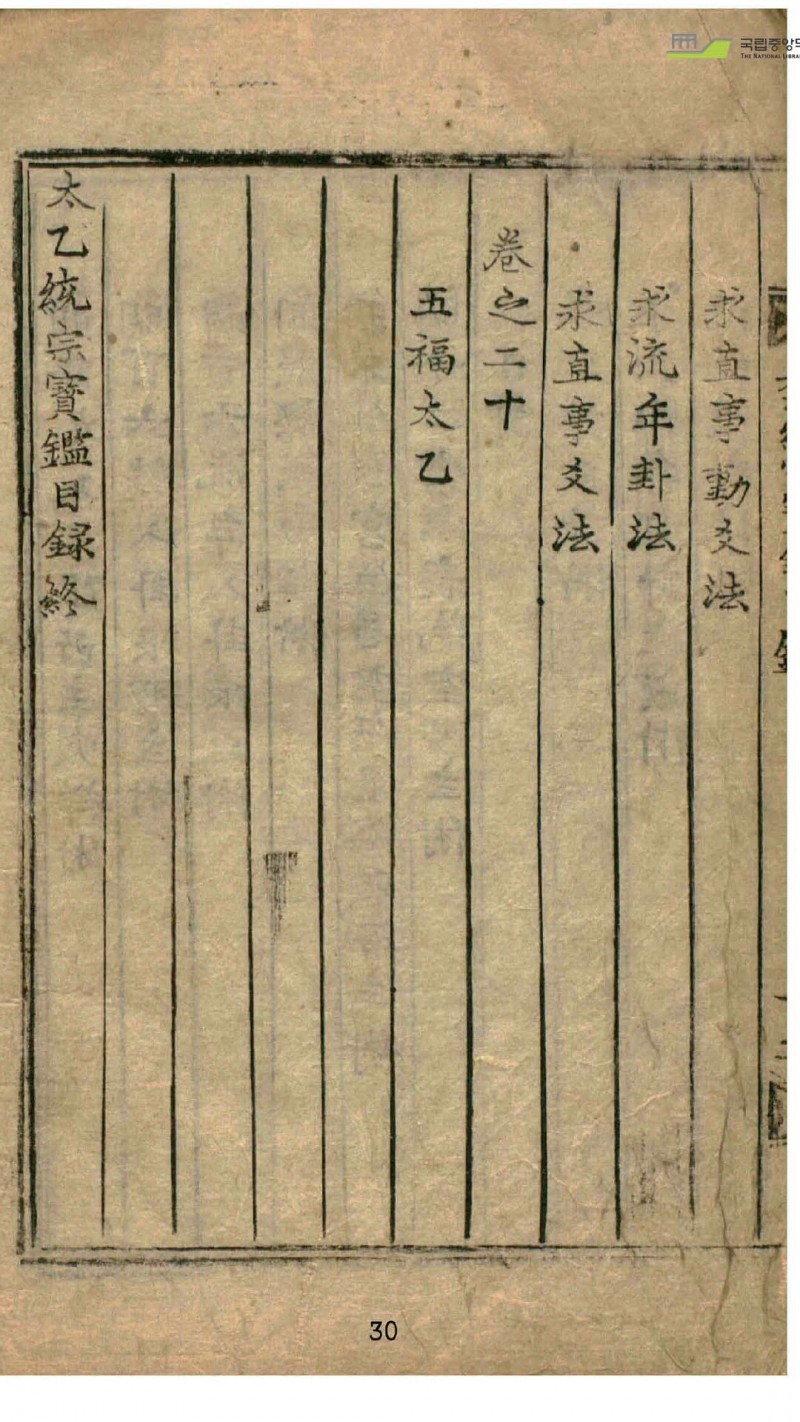 求直事動爻法
求流年卦法
求直事爻法
卷之二十
五福太乙
太乙統宗寶鑑目録終
국립중앙도
THE NATIONAL LIBRA
30